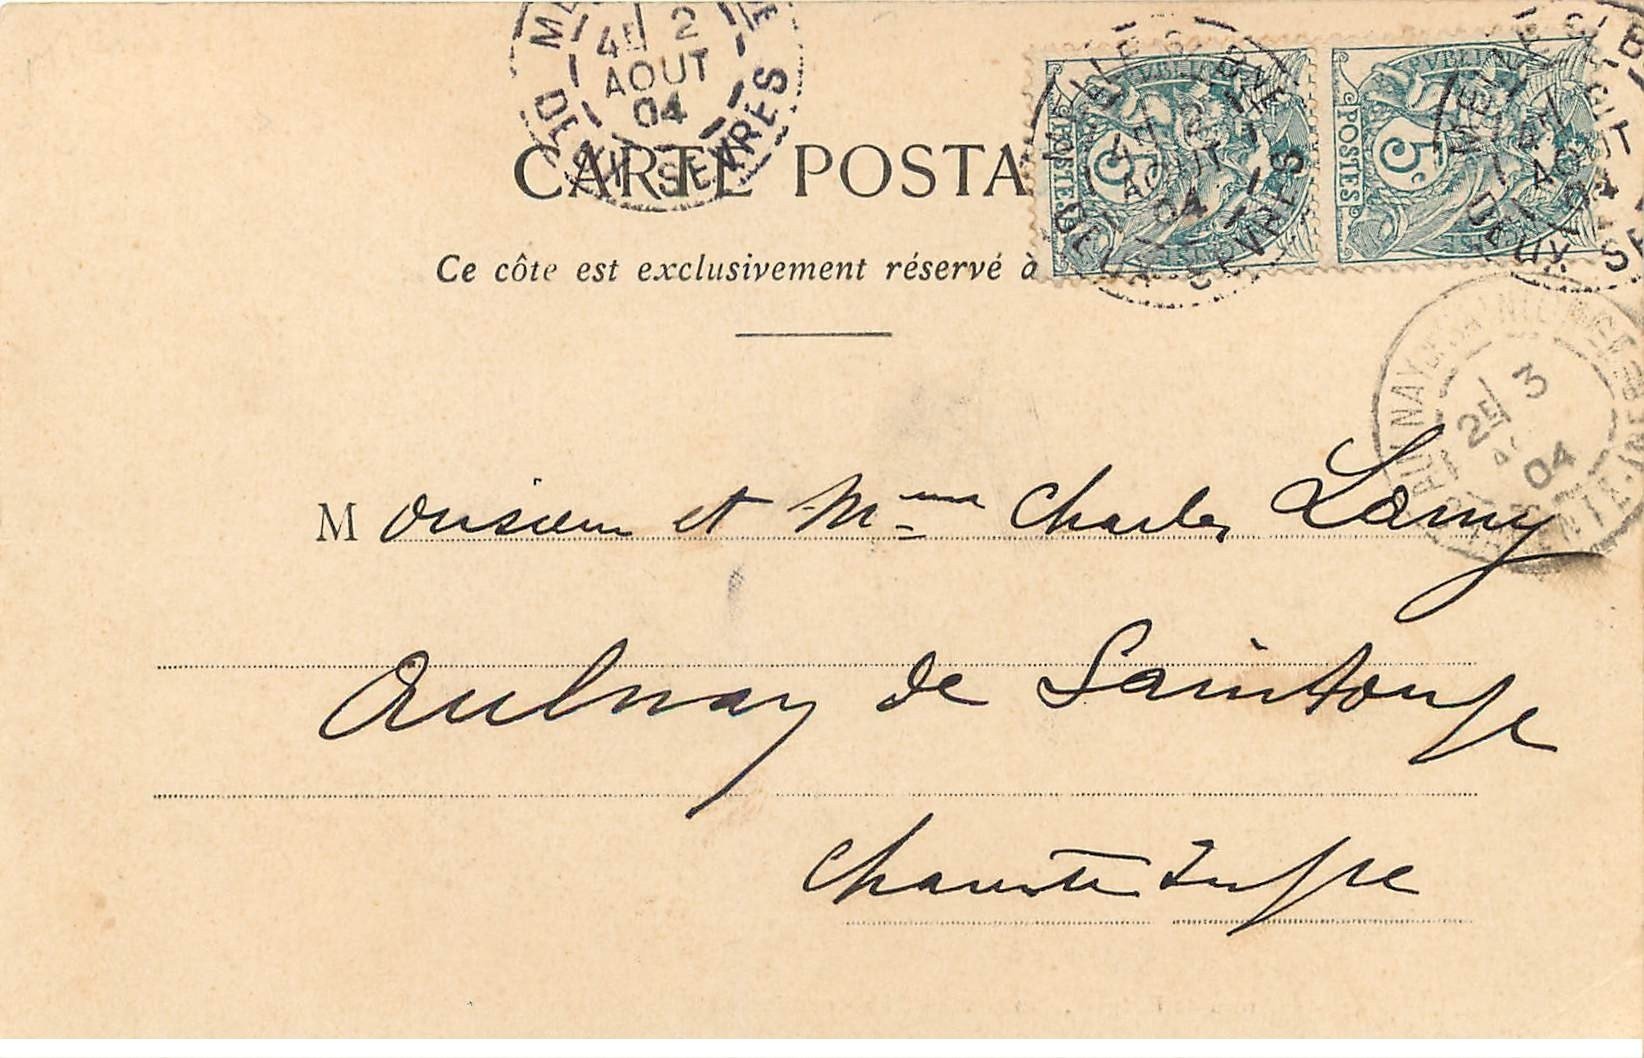 4E 2
AOUT
04
DEUX SEVRES
CARTE POSTA
Ce côté est exclusivement réservé à
POSTES
5c
POSTES
AOUT
04
DEUX SEVRES
DEUX
2E 3
04
Monsieur et Mme Charles Lamy
Aulnay de Saintonge
Charente Infre